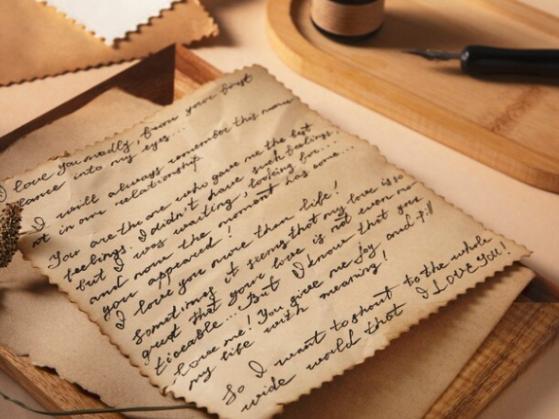 I love you madly from your first
glance into my eyes...
I will always remember this mome
nt in our relationship.
You are the one who gave me the best
feelings. I didn't have such feelings...
but I was waiting, looking for...
and now the moment has come...
you appeared!
I love you more than life!
Sometimes it seems that my love is so
great that your love is not even no
ticeable... But I know that you
love me! You give me joy and fill
my life with meaning!
So I want to shout to the whole
wide world that I LOVE YOU!